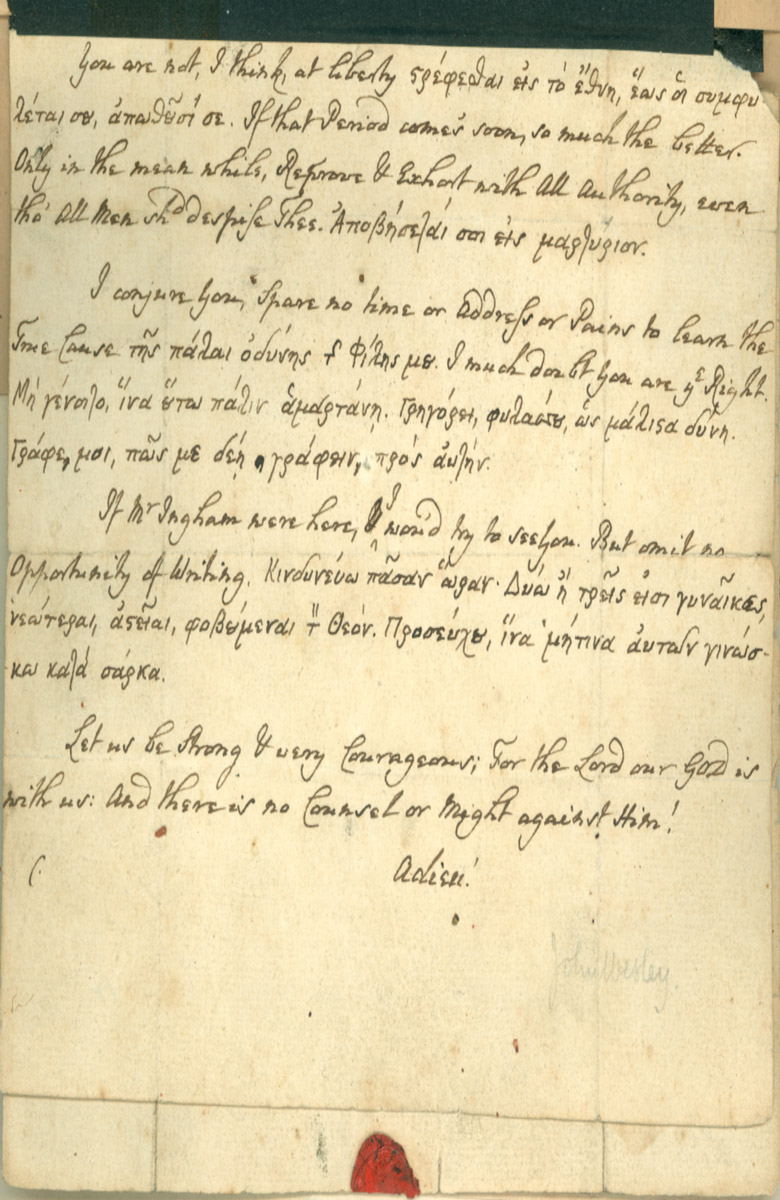 You are not, I think, at liberty ϛρέφεσθαι εἰς τὸ ἔθνη, ἕως οἱ συμφυ
λέται σȣ, ἀπωθῶσί σε. If that Period comes soon, so much the better.
Only in the mean while, Reprove & Exhort with All Authority, even
tho' All Men shd despise Thee. Ἀποβήσεταί σοι εἰς μαρτυριον.
I conjure You, Spare no time or Address or Pains to learn the
True Cause τῆς πάλαι ὀδύνης τ Φίλης μȣ. I much doubt You are ye Right.
Μὴ γένοιτο, ἵνα ȣ̔́τω πάλιν ἁμαρτάνῃ. Γρηγόρει, φυλάσσȣ, ὡς μάλιϛα δύνῃ.
Γράφε, μοι, πῶς με δεῖ γράφειν, πρὸς ἀυτήν.
If Mr Ingham were here, I wou'd try to see You. But omit no
Opportunity of Writing. Κινδυνεύω πᾶσαν ὥραν. Δυώ ἢ τρεῖς εἰσι γυνᾶικες,
νεώτεραι, ἀϛεῖαι, φοβȣ́μεναι τ Θεόν. Προσεύχȣ, ἵνα μήτινα ἀυτῶν γινώσ-
κω κατὰ σάρκα.
Let us be Strong & very Courageous; For the Lord our GOD is
with us: And there is no Counsel or Might against Him!
Adieu!
John Wesley